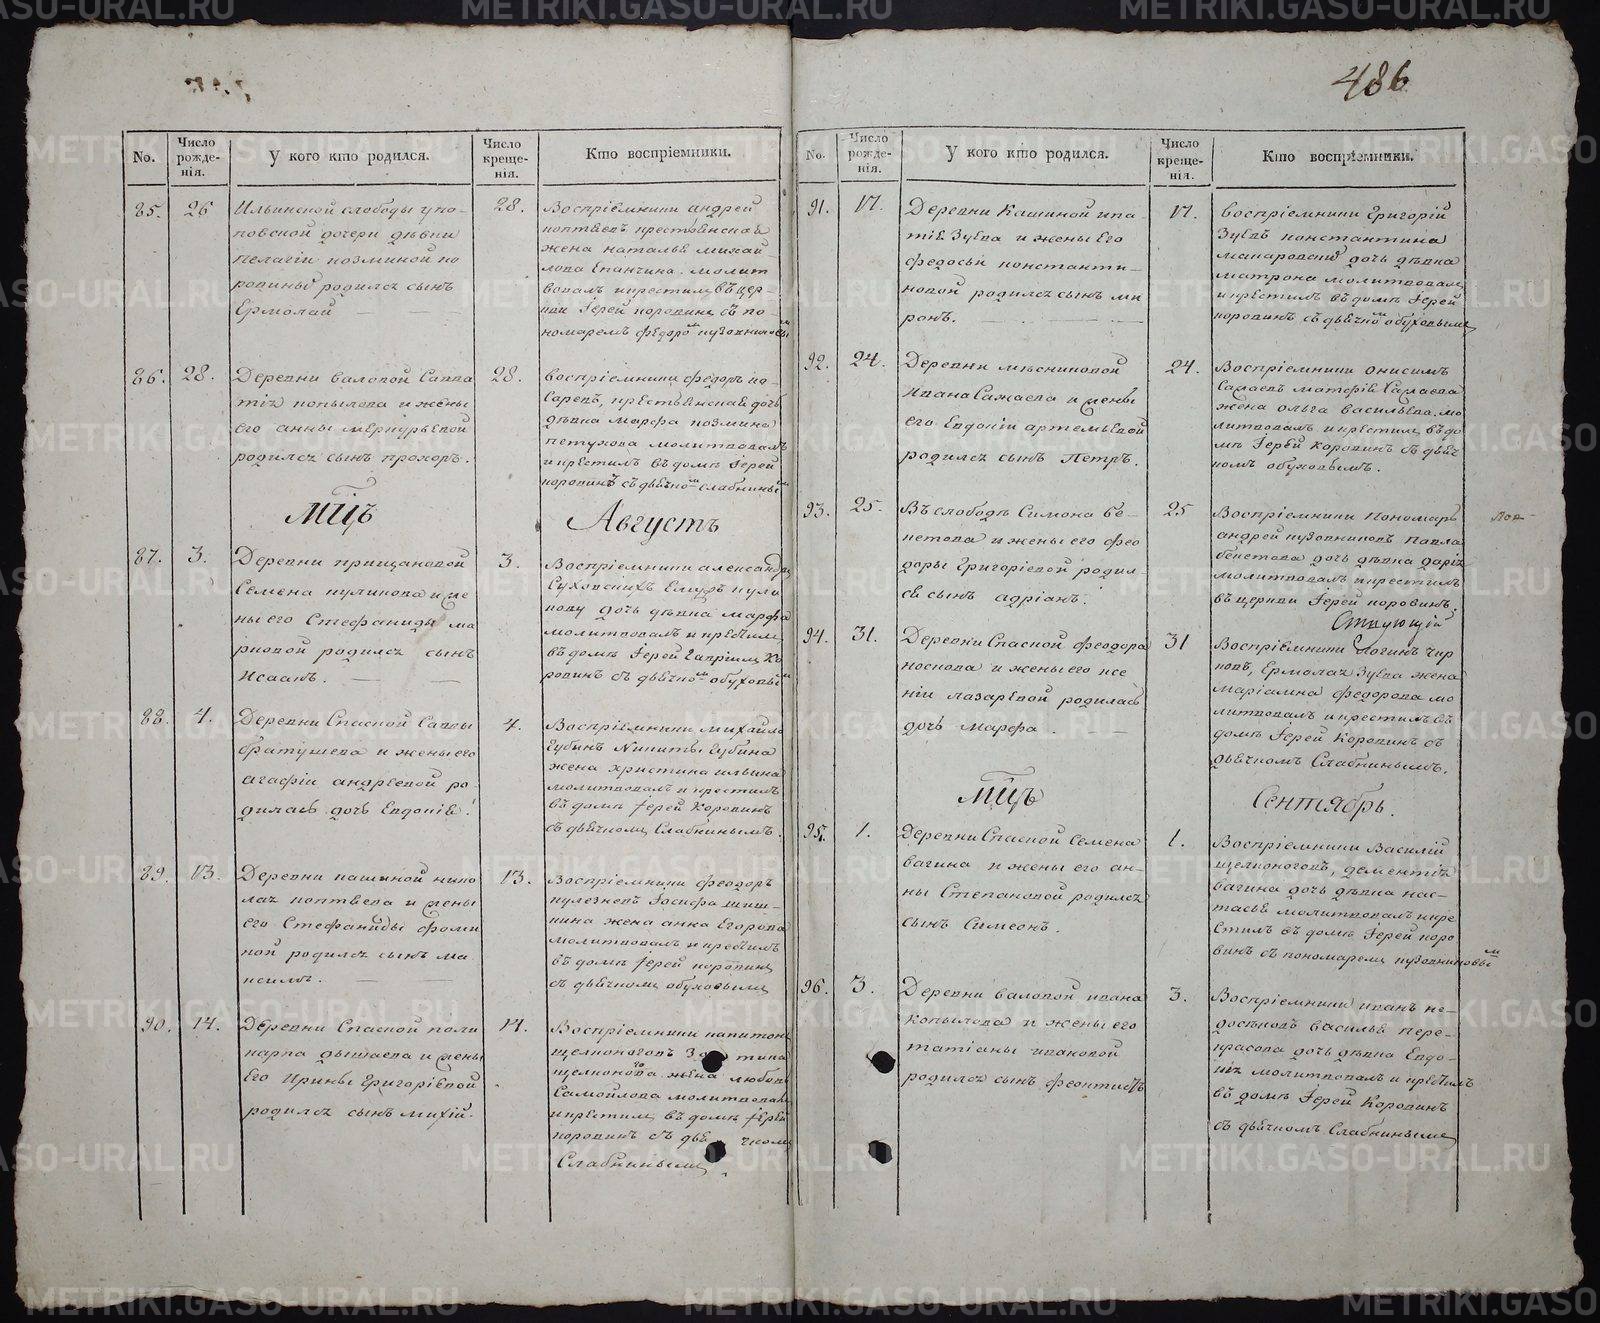 486
No.
Число рожде-нія.
У кого кто родился.
Число креще-нія.
Кто воспріемники.
85. 26
Ильинской слободы упо-
повской дочери дѣвки
пелагіи козминой ко
родился сынъ
Ермолай
28.
Воспріемники андрей
коптѣевъ крестьянская
жена наталья михай
лова Епанчина. молит
вовалъ и крестилъ въ цер-
кви Іерей коровинъ съ по-
номаремъ
86. 28.
Деревни валовой Савва
тія копылова и жены
его анны меркурьевой
родился сынъ прохоръ.
28.
воспріемники федоръ ко-
саревъ, крестьянская дочь
дѣвка марфа козмина
петухова молитвовалъ
и крестилъ въ домѣ Іерей
коровинъ съ дьячкомъ слабнинымъ
мцъ Августъ
87. 3.
Деревни прищановой
Семена куликова и же
ны его Стефаниды ма
рковой родился сынъ
Исаакъ.
3.
Воспріемники александръ
Сухопскихъ кули
кову дочь дѣвка марфа
молитвовалъ и крестилъ
въ домѣ Іерей Гавріилъ Ко
ровинъ съ дьячкомъ обуховымъ
88. 4.
Деревни Спасной Саввы
братушева и жены его
агафіи андреевой ро
дилась дочь Евдокія.
4.
Воспріемники михайло
Губинъ Никиты Губина
жена христина ильина
молитвовалъ и крестилъ
въ домѣ Іерей Коровинъ
съ дьячкомъ Слабнинымъ.
89. 13.
Деревни кашиной нико
лая коптѣева и жены
его Стефаниды фоми
ной родился сынъ ма
ксимъ.
13.
Воспріемники феодоръ
кулезневъ Іосифа шиш-
кина жена анна Егорова
молитвовалъ и крестилъ
въ домѣ Іерей коровинъ
съ дьячкомъ обуховымъ
90. 14.
Деревни Спасной поли
карпа дышаева и жены
Его Ирины Григоріевой
родился сынъ михій.
14.
Воспріемники капитонъ
щелконоговъ
щелконогова жена любовь
Самойлова молитвовалъ
и крестилъ въ домѣ Іерей
коровинъ съ дья чкомъ
Слабнинымъ
No.
Число рожде-нія.
У кого кто родился.
Число креще-нія.
Кто воспріемники.
91. 17.
Деревни Кашиной ипа-
тія Зуева и жены Его
федосьи константи-
новой родился сынъ ми
ронъ.
17.
воспріемники Григорій
Зуевъ константина
макаровской дочь дѣвка
матрона молитвовалъ
и крестилъ въ домѣ Іерей
коровинъ съ дьячкомъ обуховымъ
92. 24.
Деревни мясниковой
Ивана Сажаева и жены
его Евдокіи артемьевой
родился сынъ Петръ.
24.
Воспріемники онисимъ
Сажаевъ матфія Сажаева
жена ольга васильева. мо
литвовалъ и крестилъ въ до
мѣ Іерей Коровинъ съ дьяч
комъ обуховымъ.
93. 25.
Въ слободѣ Симона бе-
кетова и жены его фео
доры Григоріевой родил-
ся сынъ адріанъ.
25
Воспріемники Пономарь
андрей кузовниковъ Павла
бекетова дочь дѣвка дарія
молитвовалъ и крестилъ
въ церкви Іерей коровинъ.
94. 31.
Деревни Спасной феодора
носкова и жены его ксе
ніи лазаревой родилась
дочь марфа.
31
Воспріемники логинъ чир
ковъ, Ермолая Зуева жена
маріамна федорова мо
литвовалъ и крестилъ въ
домѣ Іерей Коровинъ съ
дьячкомъ Слабнинымъ.
мцъ Сентябрь.
95. 1.
Деревни Спасной Семена
вагина и жены его ан-
ны Степановой родился
сынъ Симеонъ.
1.
Воспріемники Василій
щелконоговъ, дементія
вагина дочь дѣвка нас-
тасья молитвовалъ и кре
стилъ въ домѣ Іерей коро
винъ съ пономаремъ кузовниковымъ
96. 3.
Деревни валовой ивана
копылова и жены его
татіаны ивановой
родился сынъ феоктистъ
3.
Воспріемники иванъ не-
досѣковъ василья пере-
красова дочь дѣвка Евдо-
кія молитвовалъ и крестилъ
въ домѣ Іерей Коровинъ
съ дьячкомъ Слабнинымъ
METRIKI.GASO-URAL.RU